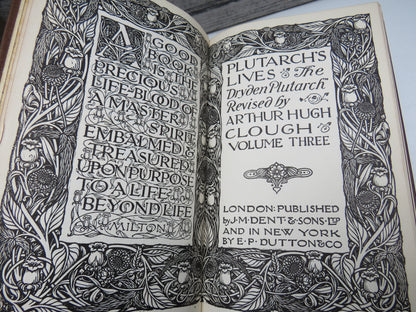 A GOOD
BOOK
IS THE
PRECIOUS
LIFE-BLOOD OF
A MASTER
SPIRIT
EMBALMED &
TREASURED
UPON PURPOSE
TO A LIFE
BEYOND LIFE
MILTON
PLUTARCH'S
LIVES The
"Dryden Plutarch"
Revised by
ARTHUR HUGH
CLOUGH
VOLUME THREE
LONDON: PUBLISHED
by J·M·DENT & SONS·LTD
AND IN NEW YORK
BY E·P·DUTTON & CO